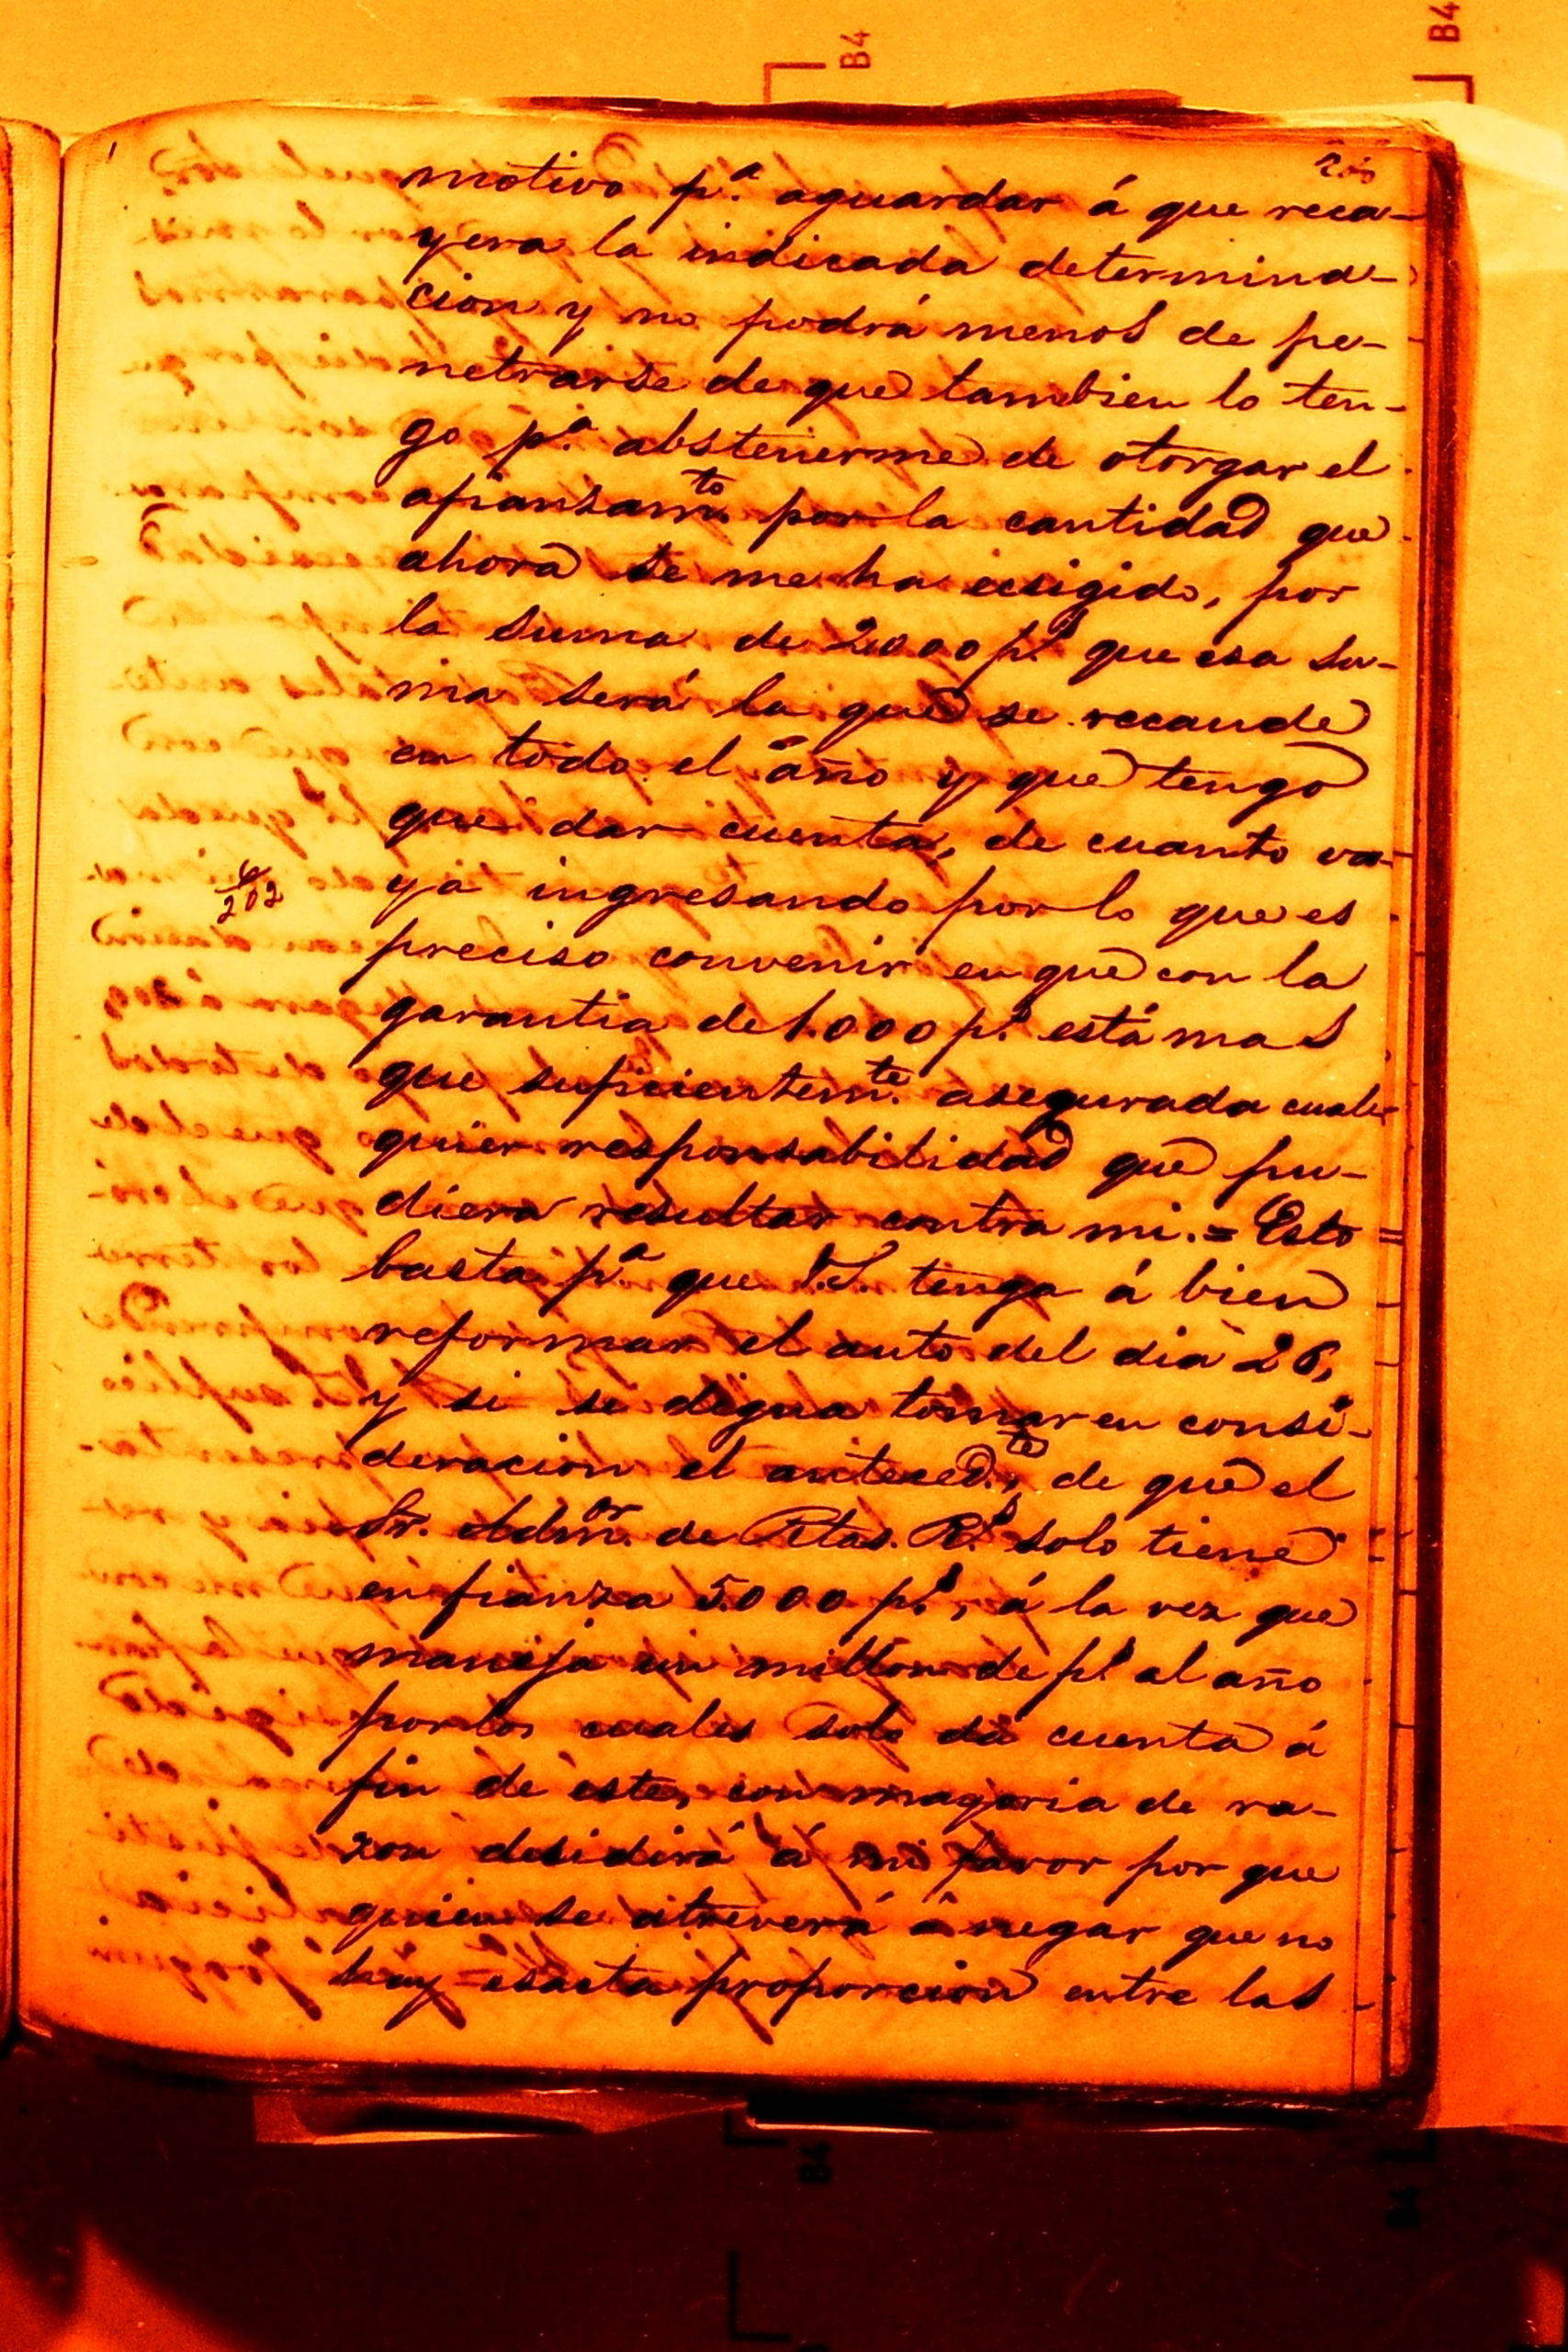 B4
B4
motivo p.ª aguardar á que reca-
yera la indicada determina-
cion y no podrá menos de pe-
netrarse de que tambien lo ten-
go p.ª abstenerme de otorgar el
afiansam.to por la cantidad que
ahora se me ha ecsigido, por
la suma de 2000 p.s que esa su-
ma será la que se recaude
en todo el año y que tengo
que dar cuenta, de cuanto va-
202
ya ingresando por lo que es
preciso convenir en que con la
garantia de 1.000 p.s está mas
que suficientem.te asegurada cual-
quier responsabilidad que pu-
diera resultar contra mi. = Esto
basta p.ª que V.S. tenga á bien
reformar el auto del dia 26,
y si se digna tomar en consi-
deracion el anteced.te, de que el
Sr. Adm.or de Rtas. R.s solo tiene
en fianza 5.000 p.s, á la vez que
maneja un millon de p.s al año
por los cuales solo dá cuenta á
fin de este, con mayoria de ra-
zon desidirá á mi favor por que
quien se atreverá á negar que no
hay esacta proporcion entre las
B4
B4